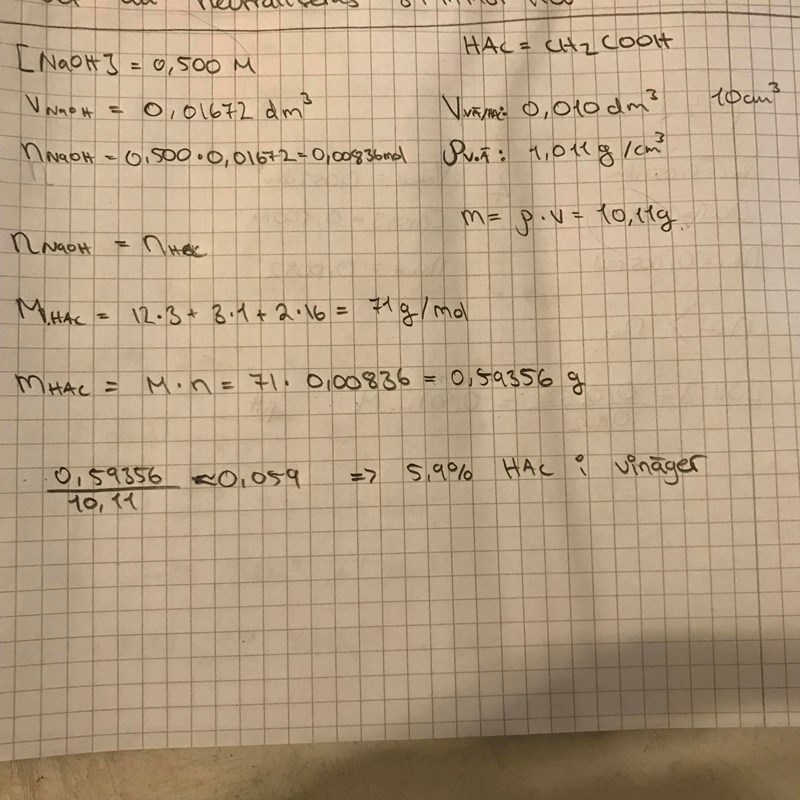 neutraliseras
[NaOH] = 0,500 M
HAc = CH2COOH
VNaOH = 0,01672 dm³
Vvä/me: 0,010 dm³ 10 cm³
nNaOH = 0,500 · 0,01672 = 0,00836 mol
ρv.ä: 1,011 g/cm³
m = ρ · V = 10,11g.
nNaOH = nHAc
MHAc = 12·3 + 3·1 + 2·16 = 71 g/mol
mHAc = M · n = 71 · 0,00836 = 0,59356 g
0,59356 / 10,11 ≈ 0,059 => 5,9% HAc i vinäger